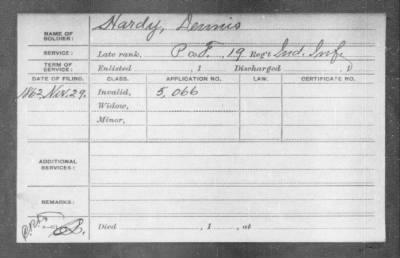 NAME OF SOLDIER: Hardy, Dennis
SERVICE: Late rank, P Co. F, 19 Reg't Ind. Inf.
TERM OF SERVICE: Enlisted , 1 Discharged , 1
DATE OF FILING. CLASS. APPLICATION NO. LAW. CERTIFICATE NO.
1862 Nov. 29. Invalid, 5,066
Widow,
Minor,
ADDITIONAL SERVICES:
REMARKS:
Died , 1 , at